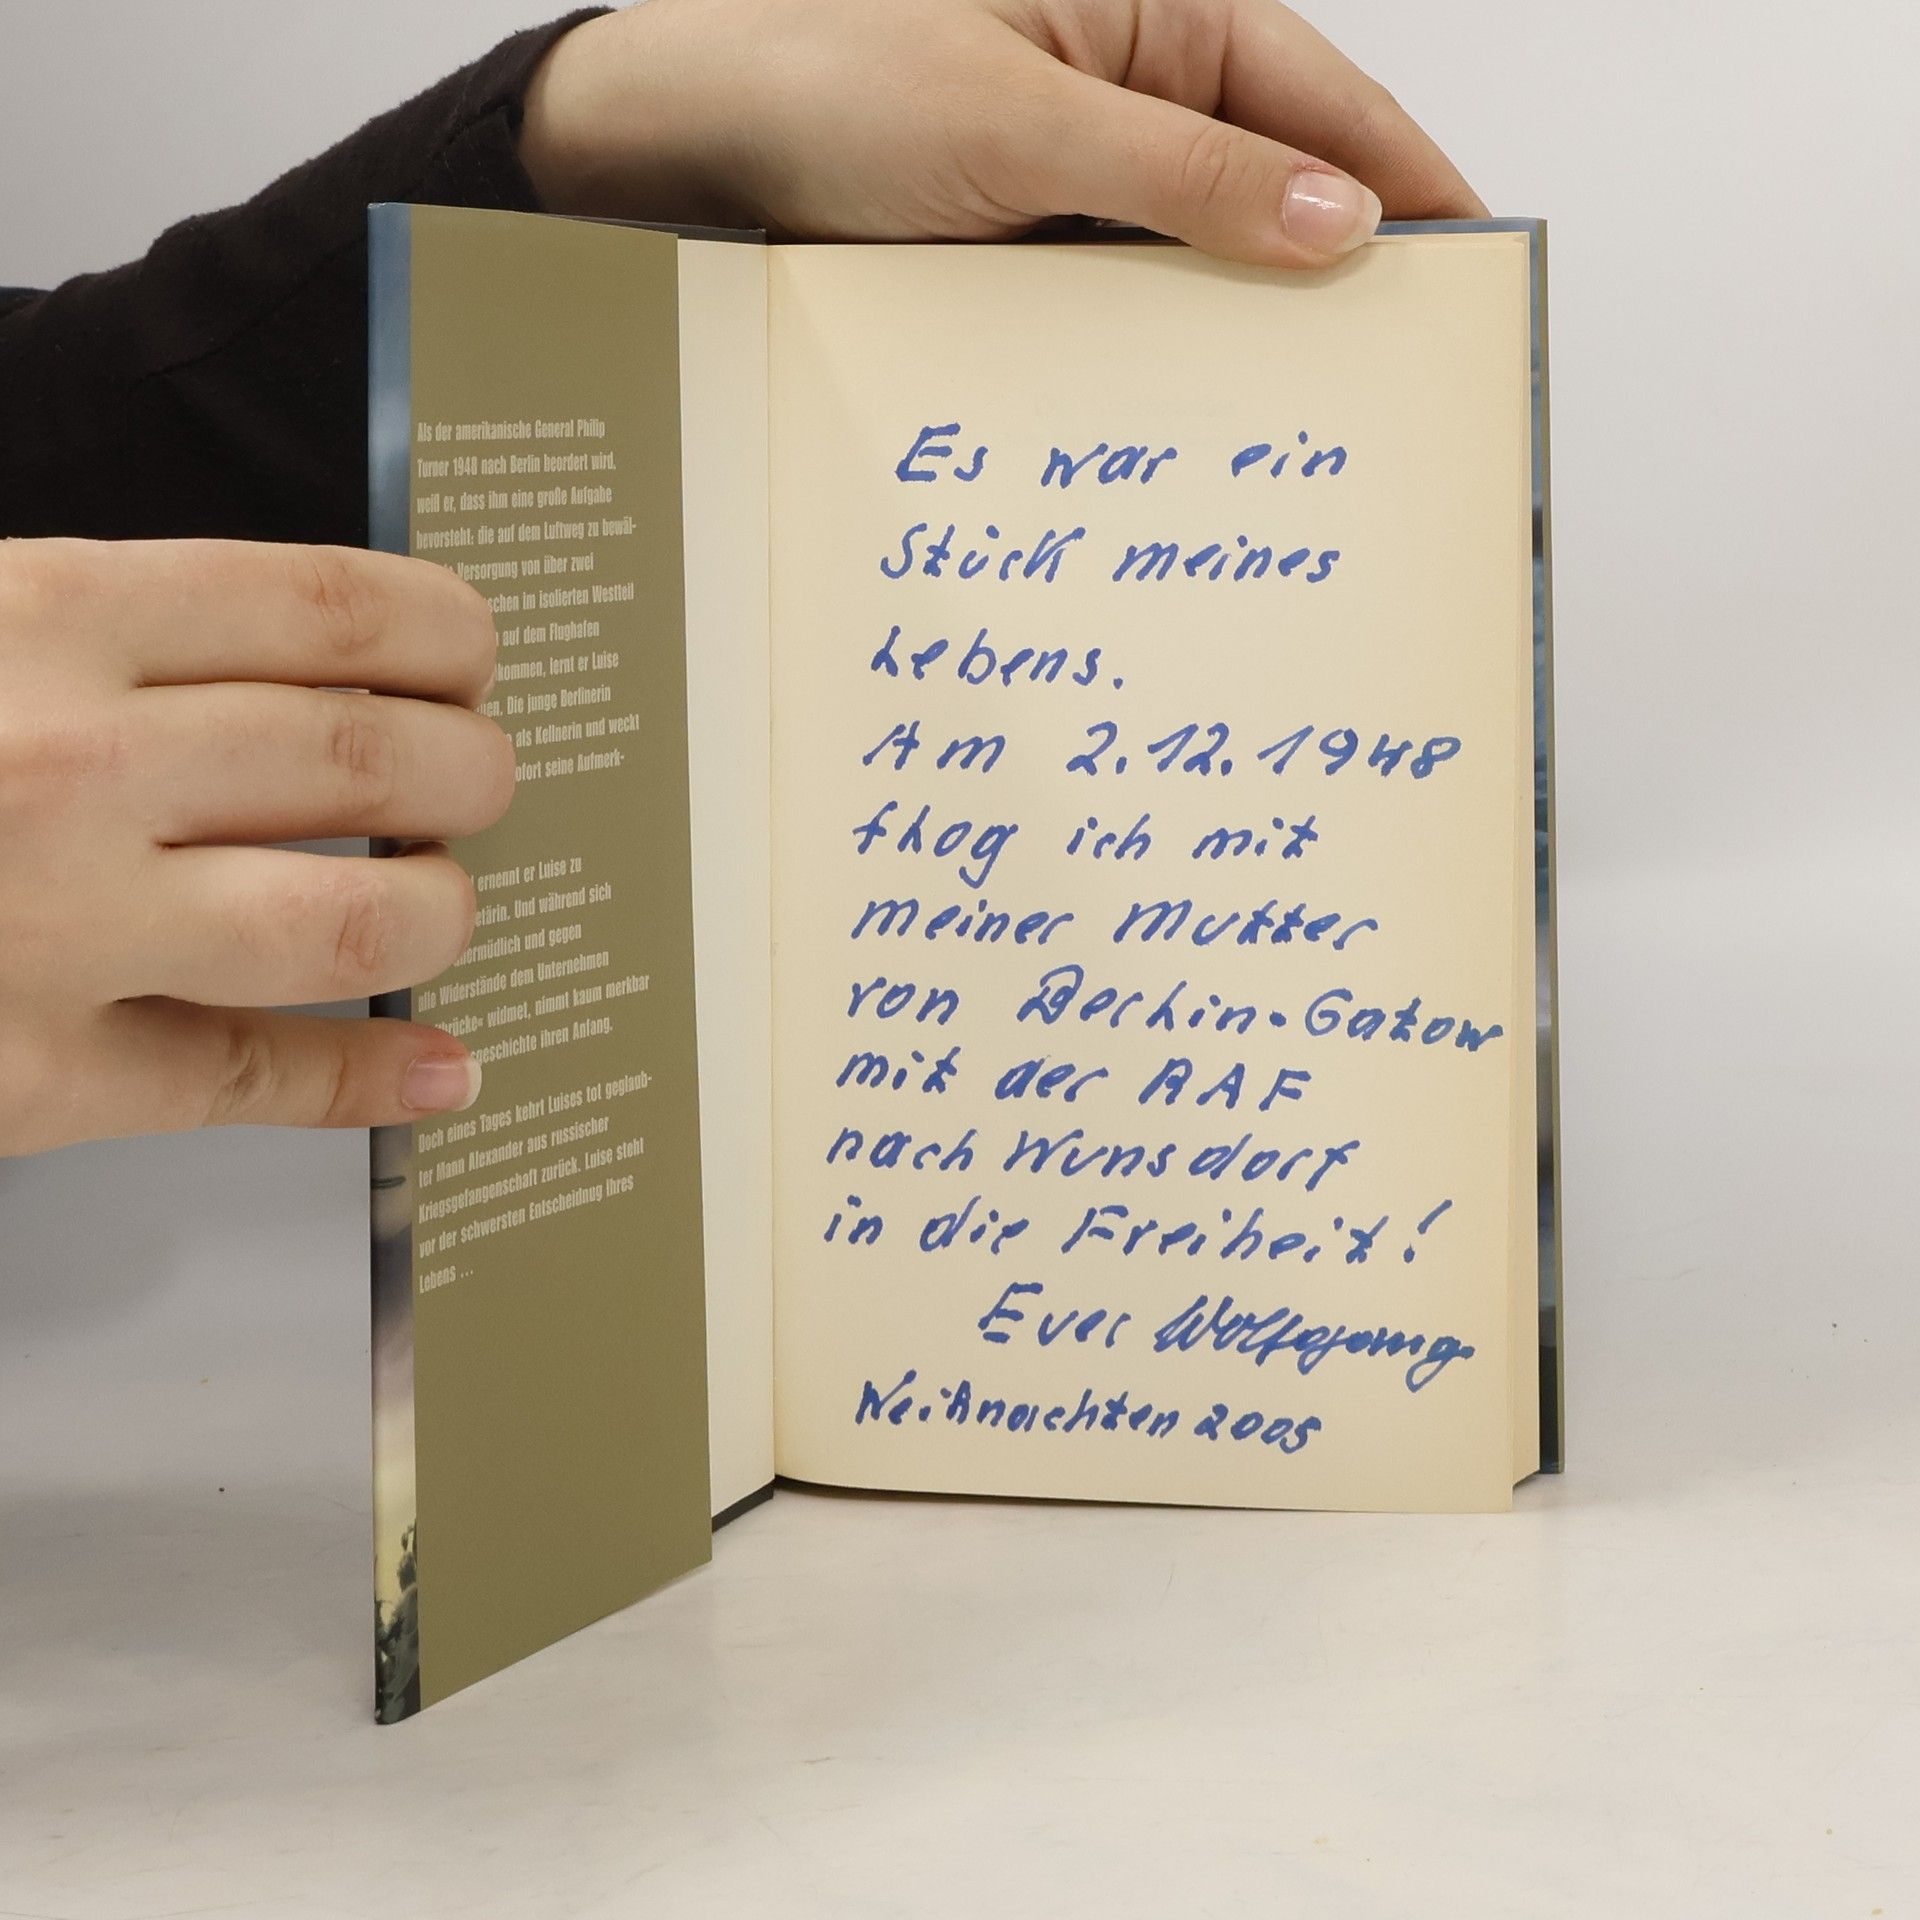 Als der amerikanische General Philip
Turner 1948 nach Berlin beordert wird,
weiß er, dass ihm eine große Aufgabe
bevorsteht: die auf dem Luftweg zu bewäl-
Versorgung von über zwei
schen im isolierten Westteil
auf dem Flughafen
kommen, lernt er Luise
Die junge Berlinerin
als Kellnerin und weckt
ofort seine Aufmerk-
ernennt er Luise zu
etärin. Und während sich
nermüdlich und gegen
alle Widerstände dem Unternehmen
brücke« widmet, nimmt kaum merkbar
sgeschichte ihren Anfang.
Doch eines Tages kehrt Luises tot geglaub-
ter Mann Alexander aus russischer
Kriegsgefangenschaft zurück. Luise steht
vor der schwersten Entscheidnug ihres
Lebens ...
Es war ein
Stück meines
Lebens.
Am 2.12.1948
flog ich mit
meiner Mutter
von Berlin-Gatow
mit der RAF
nach Wunsdorf
in die Freiheit!
Euer Wolfgang
Weihnachten 2005